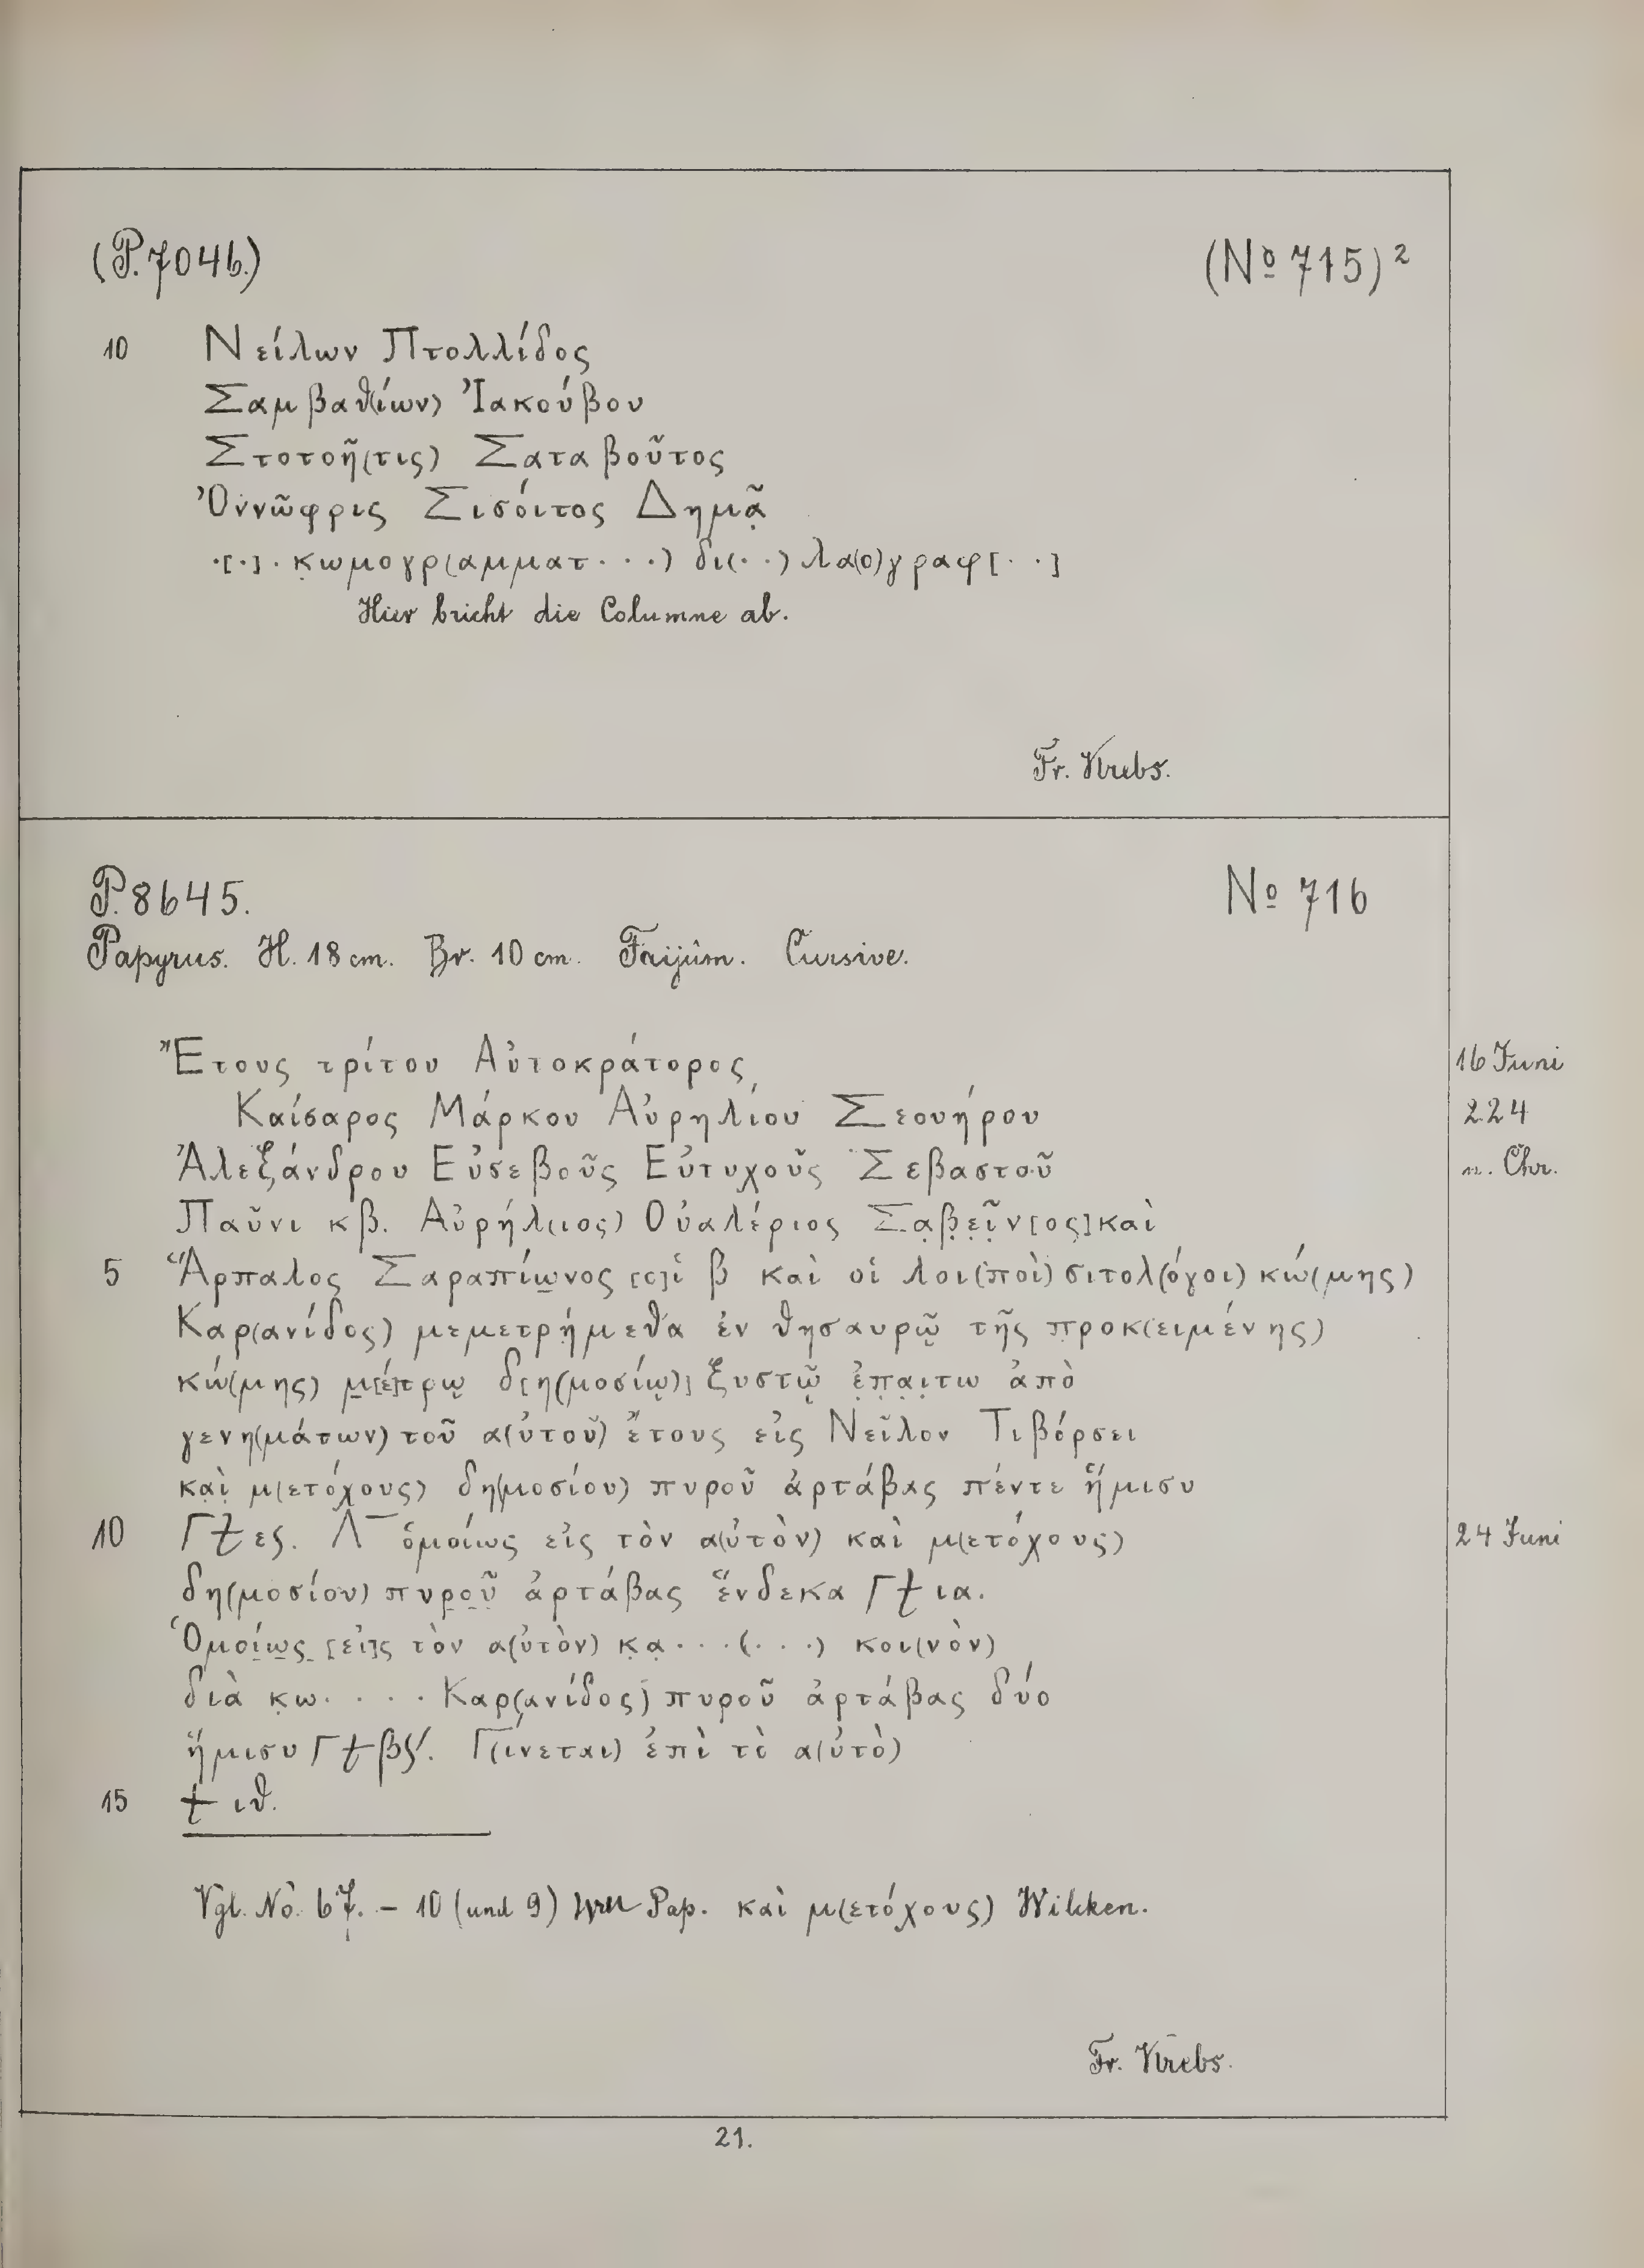 (P. 7046.) (No 715)²
10 Νείλων Πτολλίδος
Σαμβαθ(ίων) Ἰακούβου
Στοτοῆ(τις) Σαταβοῦτος
Ὀννῶφρις Σισόιτος Δημᾶ̣
.[.]. κ̣ωμογρ(αμματ...) δι(..) λα(ο)γραφ[..]
Hier bricht die Columne ab.
Fr. Krebs.
P. 8645. No 716
Papyrus. H. 18 cm. Br. 10 cm. Faijûm. Cursive.
Ἔτους τρίτου Αὐτοκράτορος 16 Juni
Καίσαρος Μάρκου Αὐρηλίου Σεουήρου 224
Ἀλεξάνδρου Εὐσεβοῦς Εὐτυχοῦς Σεβαστοῦ n. Chr.
Παῦνι κβ. Αὐρήλ(ιος) Οὐαλέριος Σα̣β̣ε̣ῖ̣ν[ος] καὶ
5 Ἅρπαλος Σαραπίω̣νος [ο]ἱ β καὶ οἱ λοι(ποὶ) σιτολ(όγοι) κώ(μης)
Καρ(ανίδος) μεμετρή̣μεθα ἐν θησαυρῷ τῆς προκ(ειμένης)
κώ(μης) μ̣[έ]τ̣ρῳ δ[η(μοσίῳ)] ξυστῷ ἐ̣π̣α̣ι̣τω ἀπὸ
γενη(μάτων) τοῦ α(ὐτοῦ) ἔτους εἰς Νεῖλον Τιβόρσει
κα̣ὶ̣ μ(ετόχους) δη(μοσίου) πυροῦ ἀρτάβας πέντε ἥμισυ
10 Γ⨪ες. Λ¯ ὁμοίως εἰς τὸν α(ὐτὸν) καὶ μ(ετόχους) 24 Juni
δη(μοσίου) πυρ̣ο̣ῦ̣ ἀρτάβας ἕνδεκα Γ⨪ια.
Ὁμο̣ί̣ω̣ς̣ [εἰ]ς τὸν α(ὐτὸν) κ̣α̣...(...) κοι(νὸν)
διὰ κ̣ω.... Καρ(ανίδος) πυροῦ ἀρτάβας δύο
ἥμισυ Γ⨪βς´. Γ(ίνεται) ἐπὶ τὸ α(ὐτὸ)
15 ⨪ιθ.
Vgl. No. 67. – 10 (und 9) Pap. καὶ μ(ετόχους) Wilcken.
Fr. Krebs.
21.